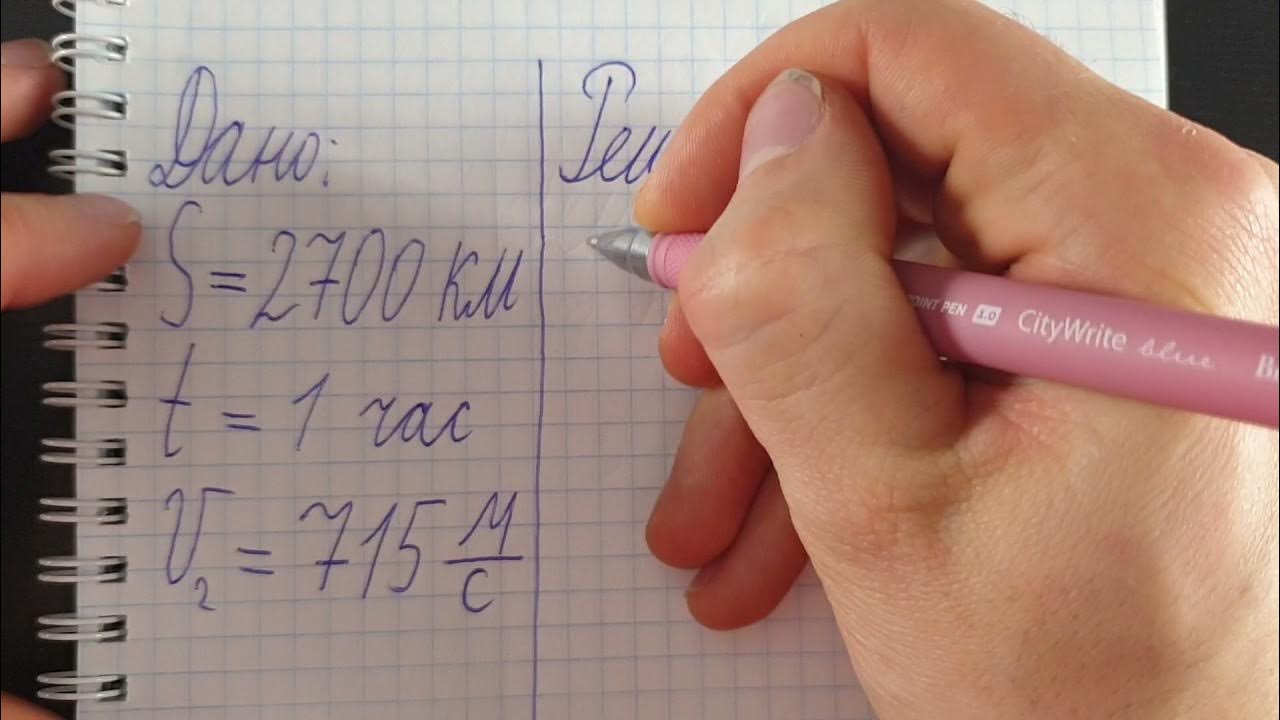 Дано:
S = 2700 км
t = 1 час
V₂ = 715 м/с
POINT PEN 1.0 CityWrite blue